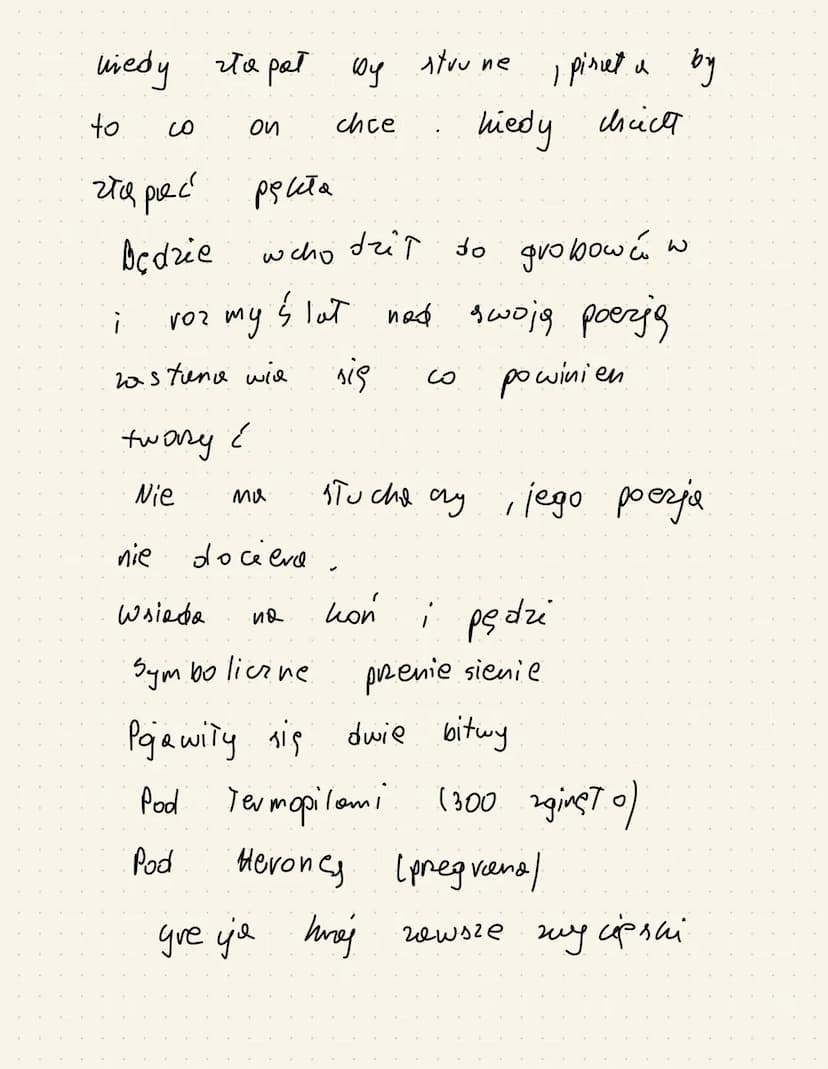 kiedy złapał by strune , pisał a by
to co on chce . kiedy chciał
złapać pękła
Będzie wchodził do grobowców
i rozmyślał nad swoją poezją
zastanawia się co powinien
tworzyć
Nie ma słuchaczy , jego poezja
nie dociera .
Wsiada na koń i pędzi
Symboliczne przeniesienie
Pojawiły się dwie bitwy
Pod Termopilami (300 zginęło)
Pod Heroneą (przegrana)
grecja kraj zawsze zwycięski